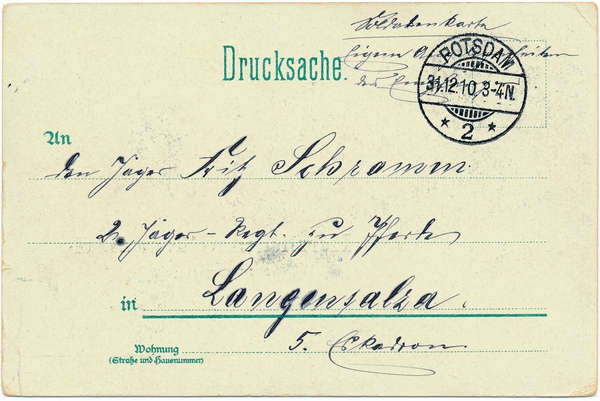 Soldatenkarte
Eigene
des
Drucksache.
POTSDAM
31.12.10.3-4N.
* 2 *
An
den Jäger Fritz Schramm
2. Jäger-Regt. zu Pferde
in Langensalza.
Wohnung
(Straße und Hausnummer)
5. Eskadron.